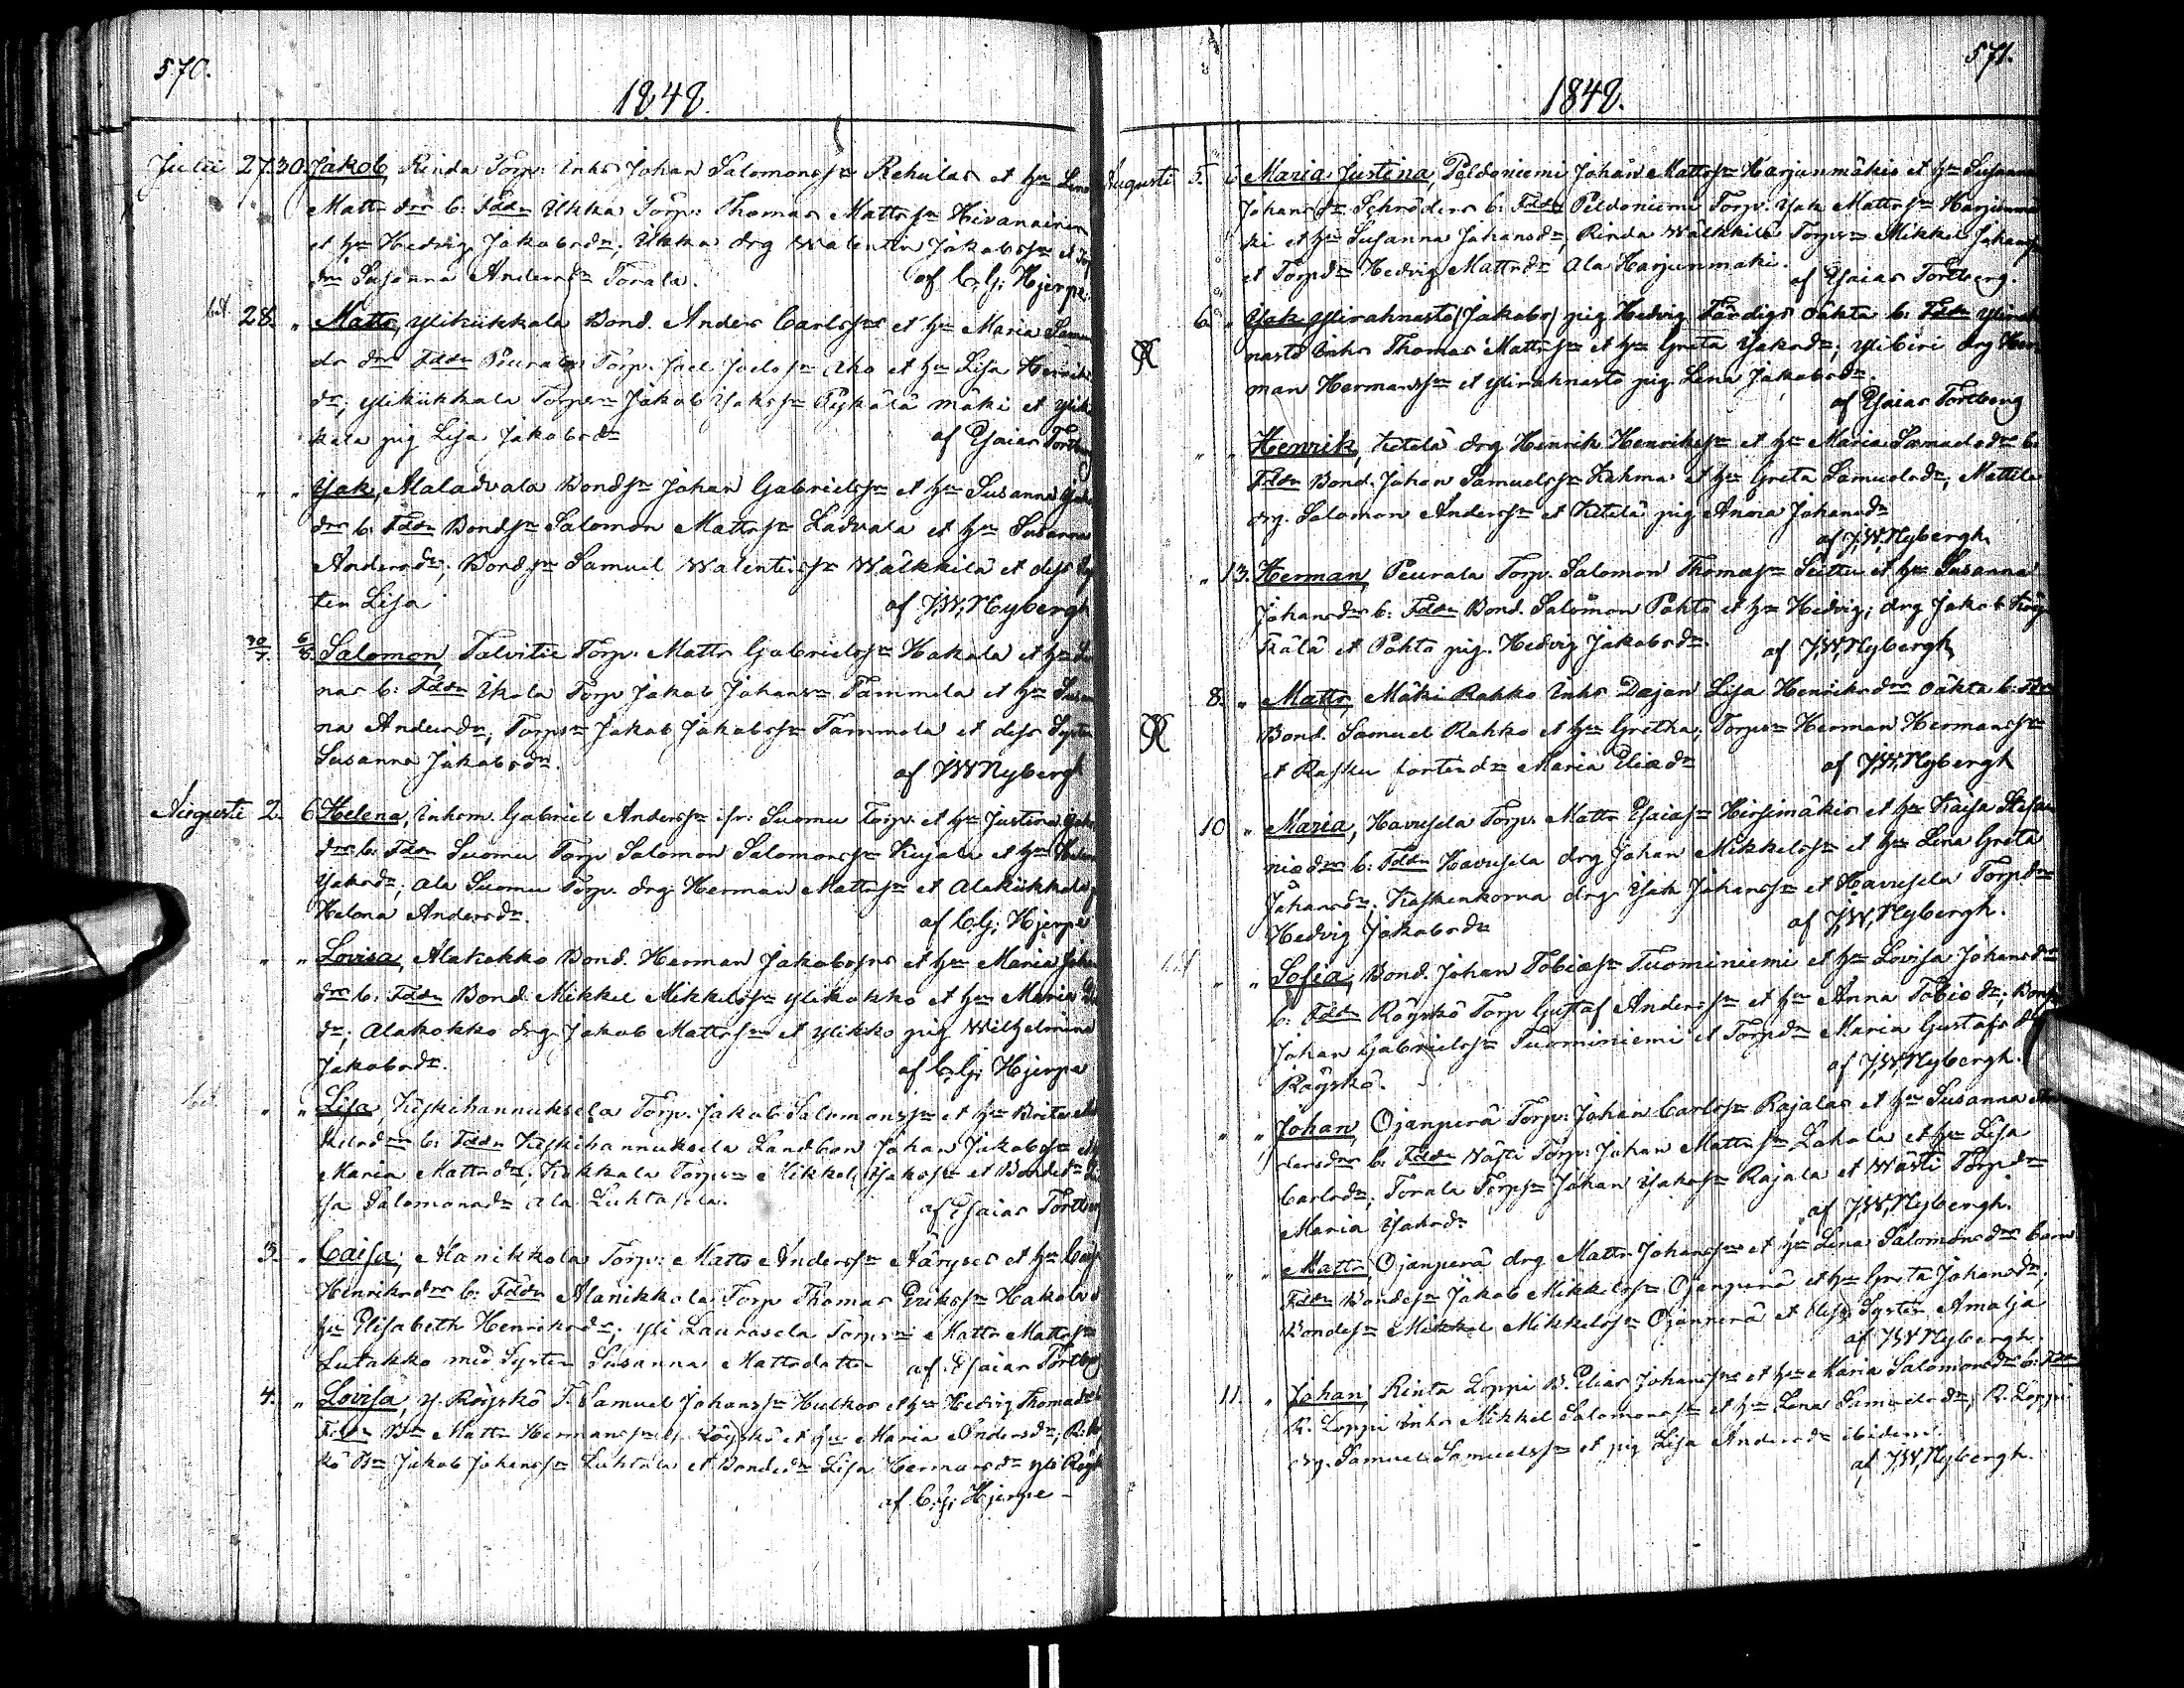 570.
1848.
Julii 27. 30. Jakob, Rinda Torp. Inhs Johan Salomonss:n Rehulas et h:u Lena
Matts d:rs b: Fddr Ukka Torp: Thomas Mattss:n Hivanainen
et h:u Hedvig Jakobsd:r; Ukka drg Walentin Jakobss:n et Torp
d:r Susanna Andersd:r Torala. af C. G. Hjerpe.
28. " Matts, Ylikiikkala Bond. Anders Carlss:ns et h:u Maria
d:rs Fddr Peurala Torp. Joel Joelss:n Aho et h:u Lisa Henriks
d:r; Ylikiikkala Torps:n Jakob Isakss:n Pyskälä mäki et
kala pig Lisa Jakobsd:r af Esaias Tortberg
" " Isak, Alaladvala Bonds:n Johan Gabrielss:n et h:u Susanna
d:rs b: Fddr Bonds:n Salomon Mattss:n Ladvala et h:u Susanna
Andersd:r; Bonds:n Samuel Walentinss:n Wälkkilä et dess Sys
ter Lisa af J. W. Nybergh
30/7. 6/8. Salomon, Talvitie Torp. Matts Gabrielss:n Hakala et h:u
nas b: Fddr Ikola Torp Jakob Johanss:n Tammela et h:u Susan
na Andersd:r; Torps:n Jakob Jakobss:n Tammela et dess Syster
Susanna Jakobsd:r. af J W Nybergh
Augusti 2. 6 Helena, Inhem. Gabriel Anderss:n ifr: Suomu Torp. et h:u Justina
d:rs b: Fddr Suomu Torp Salomon Salomonss:n Kujala et h:u
Isaksd:r; Ala Suomu Torp. drg Herman Mattss:n et Alakiikkala
Helena Andersd:r. af C. G. Hjerpe
" " Lovisa, Alakokko Bond. Herman Jakobss:ns et h:u Maria
d:rs b: Fddr Bond Mikkel Mikkelss:n Ylikokko et h:u Maria
d:r; Alakokko drg Jakob Mattss:n et Ylikko pig Wilhelmina
Jakobsd:r. af C. G. Hjerpe
" " Lisa, Keskihannuksela Torp. Jakob Salomonss:n et h:u Brita
d:rs b: Fddr Keskihannuksela Landbon Johan Jakobss:n et
Maria Mattsd:r; Kokkala Torps:n Mikkel Isakss:n et Bonded:r Li
sa Salomonsd:r Ala Luhtasela. af Esaias Tortberg
3. " Caisa, Alanikkola Torp: Matts Anderss:n et h:u Caisa
Henriksd:rs b: Fddr Alanikkola Torp Thomas Erikss:n Hakola
h:u Elisabeth Henriksd:r; Yli Laurosela Torps:n Matts Mattss:n
Lutakko med Syster Susanna Mattsdotter af Esaias Tortberg
4. " Lovisa, Y. Röyskö T. Samuel Johanss:n Hulkos et h:u Hedvig Thomasd:rs
Fddr B:n Matts Hermanss:n Y. Röyskö et h:u Maria Andersd:r; R.
kö B:n Jakob Johanss:n Luhtala et Bonded:r Lisa Hermansd:r Yli Röyskö
af C. G. Hjerpe -
571.
1848.
Augusti 5. 6 Maria Justina, Peldoniemi Johan Mattss:n Harjunmäkis et h:u Susanna
Johansd:r Schröders b: Fddr Peldoniemi Torp. Isak Mattss:n Harjunmä
ki et h:u Susanna Johansd:r; Rinda Wälkkilä Torps:n Mikkel Johanss:n
et Torpd:r Hedvig Mattsd:r Ala Harjunmäki. af Esaias Tortberg.
6. " Isak Ylirahnasto (Jakobs) pig Hedvig Färdigs oäkta b: Fddr Ylirah
nasto Inhs Thomas Mattss:n et h:u Greta Isaksd:r; Ylibiri drg Her
man Hermanss:n et Ylirahnasto pig Lena Jakobsd:r.
af Esaias Tortberg
" " Henrik, Ketelä drg Henrik Henrikss:n et h:u Maria Samuelsd:rs b:
Fddr Bond. Johan Samuelss:n Kahma et h:u Greta Samuelsd:r; Mattila
drg. Salomon Anderss:n et Ketelä pig Anna Johansd:r
af J. W. Nybergh.
" 13. Herman, Peurala Torp. Salomon Thomass:n Seittu et h:u Susanna
Johansd:rs b: Fddr Bond. Salomon Pohto et h:u Hedvig; drg Jakob
et Pohto pig. Hedvig Jakobsd:r. af J. W. Nybergh
8. " Matts, Mäki Rahko Inhs Dejan Lisa Henriksd:rs oäkta b: Fddr
Bond. Samuel Rahko et h:u Gretha; Torps:n Herman Hermanss:n
et Rasku Maria Eliasd:r af J. W. Nybergh
10 " Maria, Havusela Torp. Matts Esaiass:n Hirsimäkis et h:u Kaisa Stefa
niæd:rs b: Fddr Havusela drg Johan Mikkelss:n et h:u Lena Greta
Johansd:r; Kaskenkorva drg Isak Johanss:n et Havusela Torpd:r
Hedvig Jakobsd:r af J. W. Nybergh.
" " Sofia, Bond. Johan Tobiæs:n Tuominiemi et h:u Lovisa Johansd:r
b: Fddr Röyskö Torp Gustaf Anderss:n et h:u Anna Tobiæd:r; Bonds:n
Johan Gabrielss:n Tuominiemi et Torpd:r Maria Gustafsd:r
Röyskö. af J. W. Nybergh.
" " Johan, Ojanperä Torp: Johan Carlss:n Rajalas et h:u Susanna An
dersd:rs b: Fddr Wästi Torp: Johan Mattss:n Lahola et h:u Lisa
Carlsd:r; Torala Torps:n Johan Isakss:n Rajala et Wästi Torpd:r
Maria Isaksd:r af J. W. Nybergh.
" " Matts, Ojanperä drg Matts Johanss:ns et h:u Lena Salomonsd:rs barn
Fddr Bondes:n Jakob Mikkelss:n Ojanperä et h:u Greta Johansd:r;
Bondes:n Mikkel Mikkelss:n Ojanperä et dess Syster Amalja
af J. W. Nybergh.
11. " Johan, Rinta Loppi B. Elias Johanss:ns et h:u Maria Salomonsd:rs b: Fddr
R. Loppi Inhs Mikkel Salomonss:n et h:u Lena Samuelsd:r; R. Loppi
drg. Samuel Samuelss:n et pig Lisa Andersd:r ibidem.
af J. W. Nybergh.